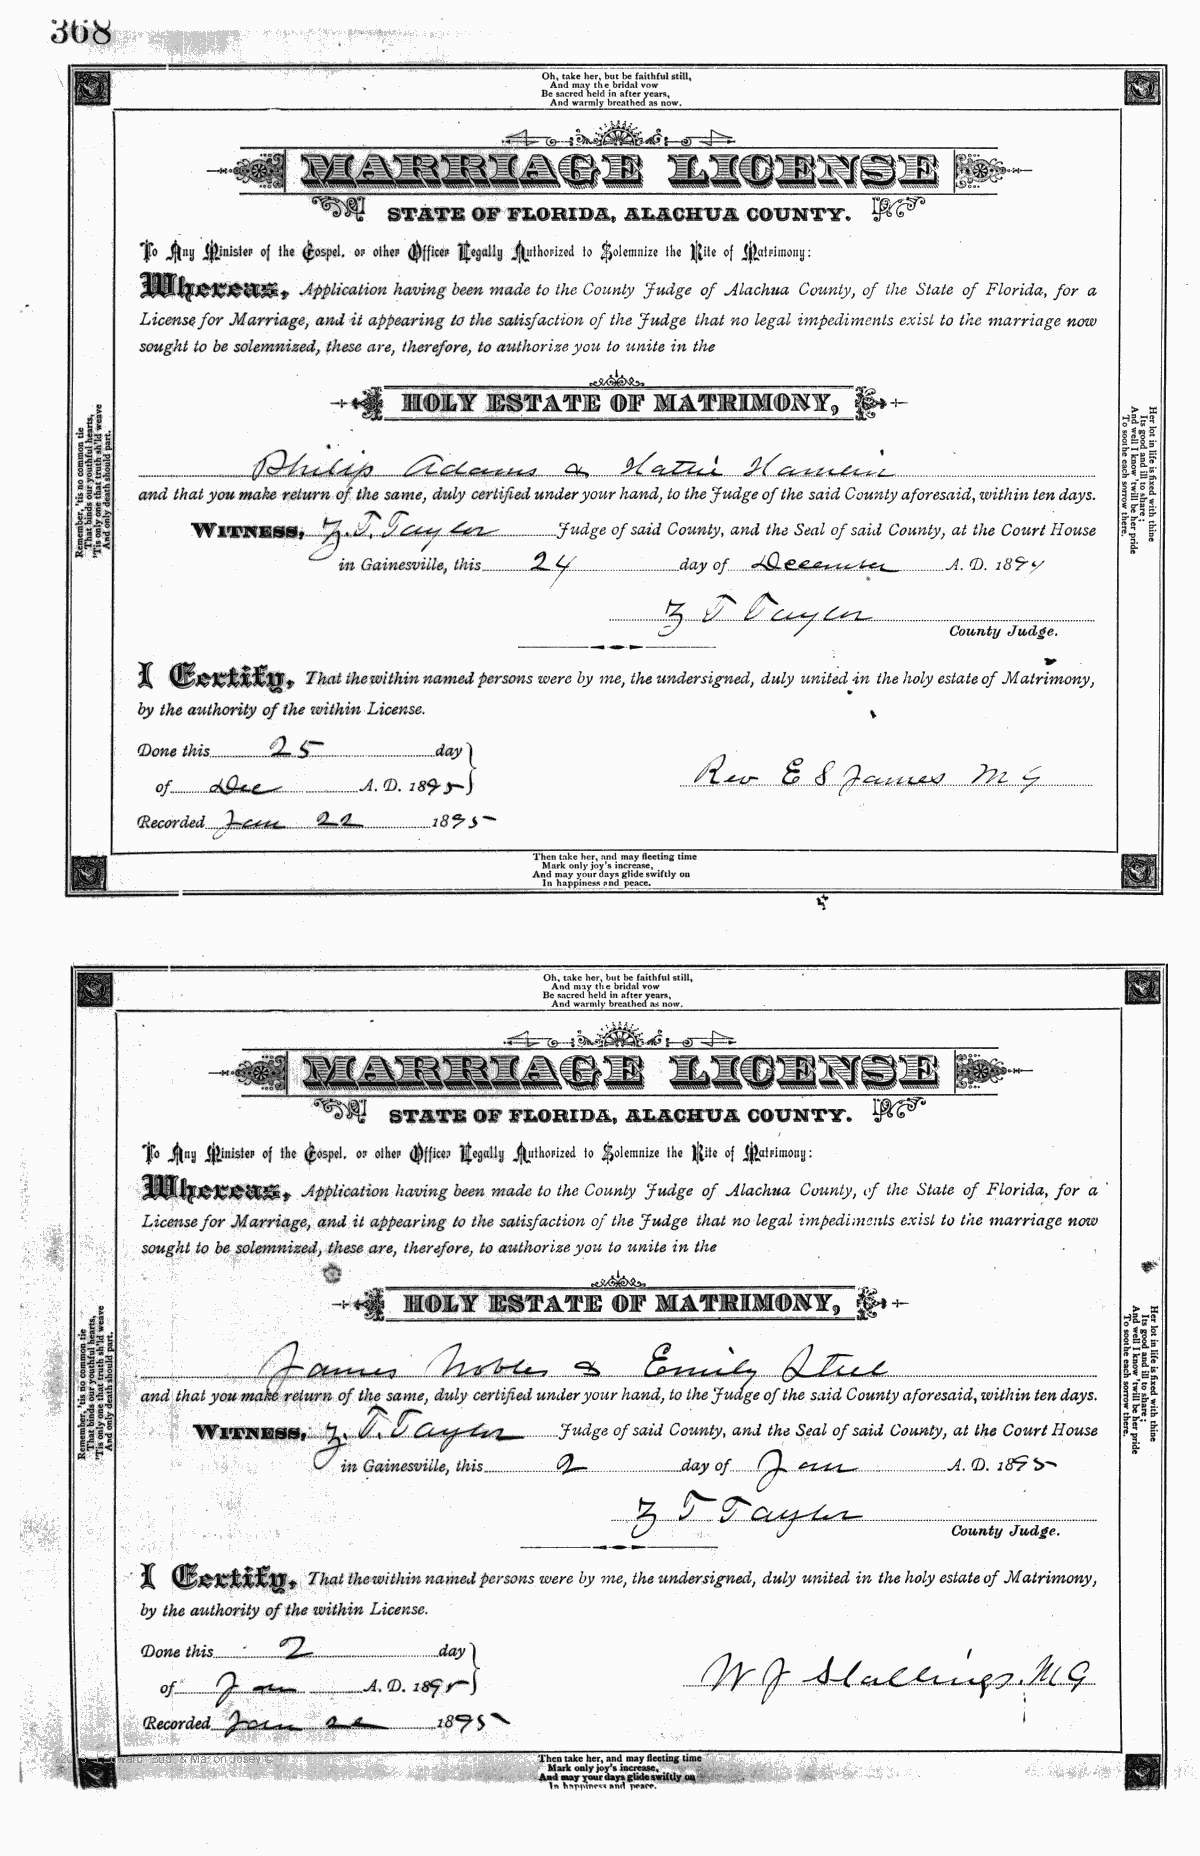 368
Oh, take her, but be faithful still,
And may the bridal vow
Be sacred held in after years,
And warmly breathed as now.
MARRIAGE LICENSE
STATE OF FLORIDA, ALACHUA COUNTY.
To Any Minister of the Gospel, or other Officer Legally Authorized to Solemnize the Rite of Matrimony:
Whereas, Application having been made to the County Judge of Alachua County, of the State of Florida, for a
License for Marriage, and it appearing to the satisfaction of the Judge that no legal impediments exist to the marriage now
sought to be solemnized, these are, therefore, to authorize you to unite in the
HOLY ESTATE OF MATRIMONY,
Philip Adams & Hattie Hamlin
and that you make return of the same, duly certified under your hand, to the Judge of the said County aforesaid, within ten days.
WITNESS, Z. T. Taylor Judge of said County, and the Seal of said County, at the Court House
in Gainesville, this 24 day of December A. D. 1894
Z T Taylor
County Judge.
I Certify, That the within named persons were by me, the undersigned, duly united in the holy estate of Matrimony,
by the authority of the within License.
Done this 25 day
of Dec A. D. 1895
Rev E S James M G
Recorded Jan 22 1895
Remember, 'tis no common tie
That binds our youthful hearts,
'Tis only one that truth sh'ld weave
And only death should part.
Her lot in life is fixed with thine
Its good and ill to share;
And well I know 'twill be her pride
To soothe each sorrow there.
Then take her, and may fleeting time
Mark only joy's increase,
And may your days glide swiftly on
In happiness and peace.
Oh, take her, but be faithful still,
And may the bridal vow
Be sacred held in after years,
And warmly breathed as now.
MARRIAGE LICENSE
STATE OF FLORIDA, ALACHUA COUNTY.
To Any Minister of the Gospel, or other Officer Legally Authorized to Solemnize the Rite of Matrimony:
Whereas, Application having been made to the County Judge of Alachua County, of the State of Florida, for a
License for Marriage, and it appearing to the satisfaction of the Judge that no legal impediments exist to the marriage now
sought to be solemnized, these are, therefore, to authorize you to unite in the
HOLY ESTATE OF MATRIMONY,
James Nobles & Emily Steel
and that you make return of the same, duly certified under your hand, to the Judge of the said County aforesaid, within ten days.
WITNESS, Z. T. Taylor Judge of said County, and the Seal of said County, at the Court House
in Gainesville, this 2 day of Jan A. D. 1895
Z T Taylor
County Judge.
I Certify, That the within named persons were by me, the undersigned, duly united in the holy estate of Matrimony,
by the authority of the within License.
Done this 2 day
of Jan A. D. 1895
W J Stallings. M G
Recorded Jan 22 1895
Remember, 'tis no common tie
That binds our youthful hearts,
'Tis only one that truth sh'ld weave
And only death should part.
Her lot in life is fixed with thine
Its good and ill to share;
And well I know 'twill be her pride
To soothe each sorrow there.
Then take her, and may fleeting time
Mark only joy's increase,
And may your days glide swiftly on
In happiness and peace.